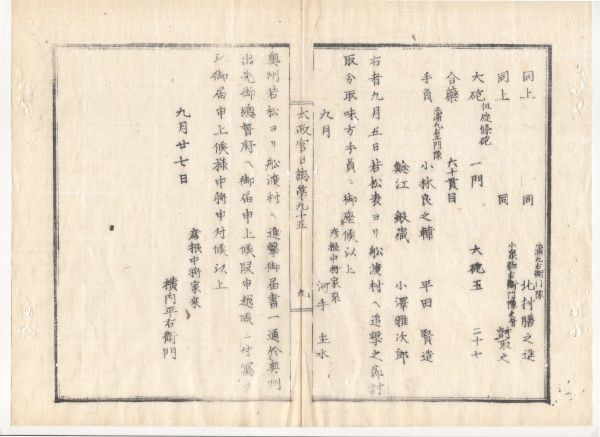 同上 同 三浦九右衛門隊 北村勝之進
同上 同 小泉弥右衛門隊之者 討取之
大砲 但旋條砲 一門 大砲玉 二十七
合藥 六十貫目
三浦九右衛門隊
手負 小林良之輔 平田賢造
鯰江銀蔵 小澤雅次郎
右者九月五日若松表ヨリ舩渡村ヘ追撃之節討
取分取味方手負ニ御座候以上
九月 彦根中将家來 河手主水
太政官日誌第九十五 九
奥州若松ヨリ舩渡村ヘ進撃御届書一通於奥州
出先御總督府ヘ御届申上候段申越候ニ付寫ヲ
以御届申上候様中将申付候以上
九月廿七日
彦根中将家來
横内平右衛門